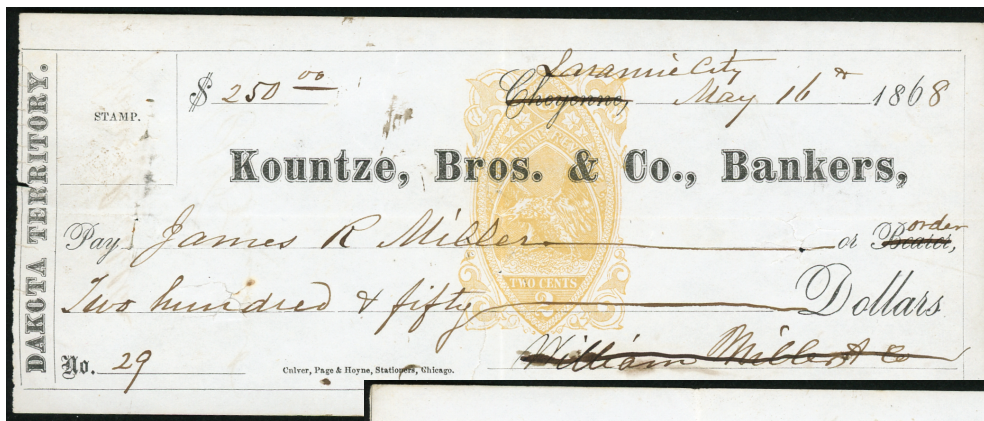 DAKOTA TERRITORY.
STAMP.
$ 250 00
Laramie City
Cheyenne, May 16th 1868
Kountze, Bros. & Co., Bankers,
Pay James R Miller or Bearer, order
Two hundred & fifty Dollars
TWO CENTS
2
No. 29
Culver, Page & Hoyne, Stationers, Chicago.
William Miller & Co